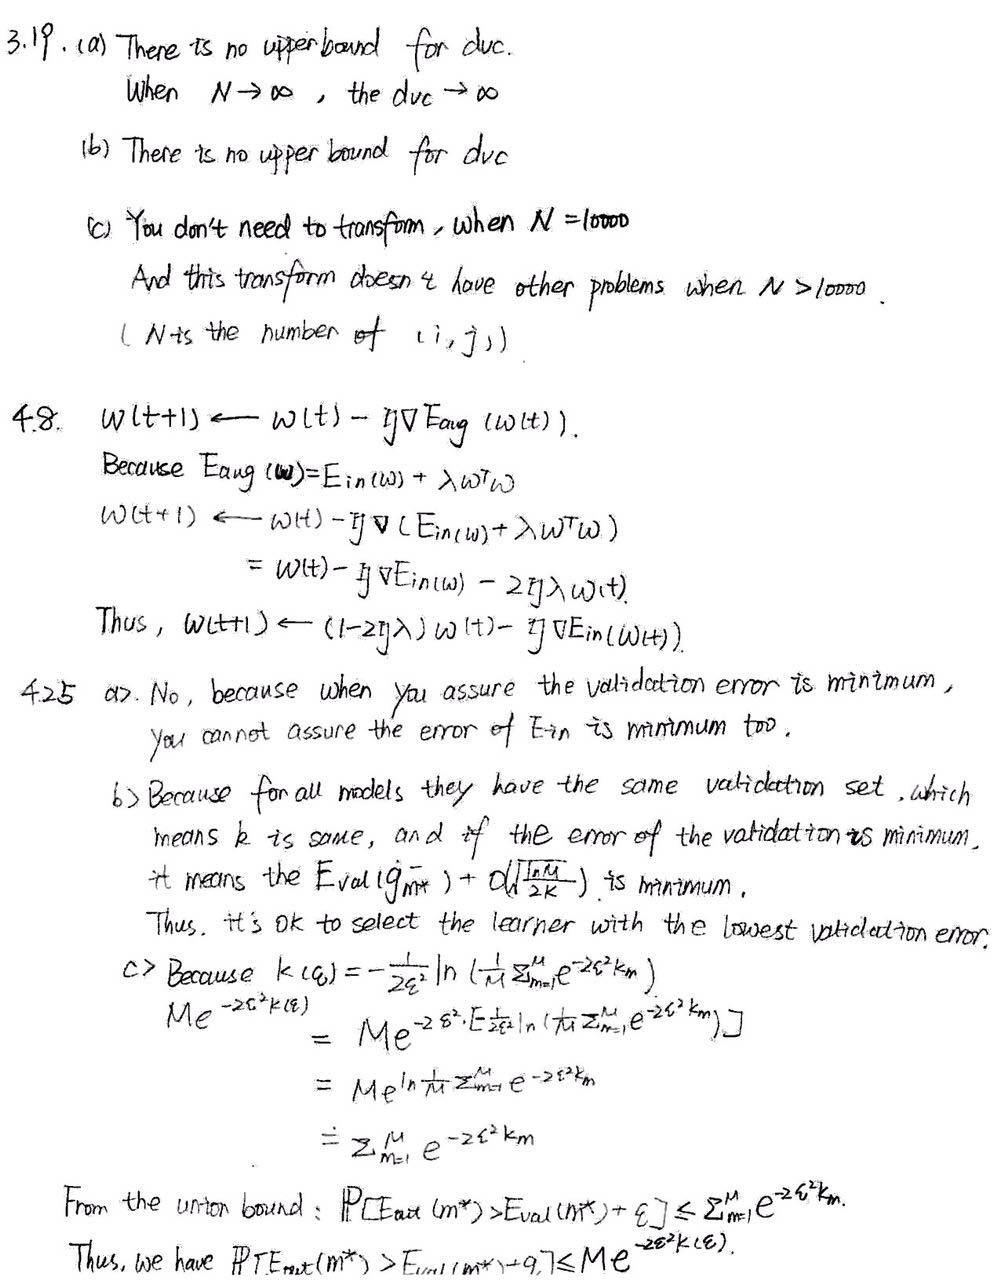 3.19. (a) There is no upper bound for dvc.
When N → ∞ , the dvc → ∞
(b) There is no upper bound for dvc
(c) You don't need to transform, when N = 10000
And this transform doesn't have other problems when N > 10000 .
( N is the number of (i, j) )
4.8. w(t+1) ← w(t) − η∇Eaug (w(t)).
Because Eaug (w) = Ein(w) + λwᵀw
w(t+1) ← w(t) − η∇ (Ein(w) + λwᵀw)
= w(t) − η∇Ein(w) − 2ηλw(t).
Thus, w(t+1) ← (1−2ηλ) w(t) − η∇Ein(w(t)).
4.25 a>. No, because when you assure the validation error is minimum,
you cannot assure the error of Ein is minimum too.
b> Because for all models they have the same validation set, which
means k is same, and if the error of the validation is minimum,
it means the Eval(g⁻m*) + O(√(lnM/2K)) is minimum.
Thus, it's ok to select the learner with the lowest validation error.
c> Because k(ε) = −1/(2ε²) ln (1/M Σ_{m=1}^{M} e^{−2ε²km})
Me^{−2ε²k(ε)}
= Me^{−2ε²·[−1/(2ε²) ln(1/M Σ_{m=1}^{M} e^{−2ε²km})]}
= Me^{ln 1/M Σ_{m=1}^{M} e^{−2ε²km}}
= Σ_{m=1}^{M} e^{−2ε²km}
From the union bound : ℙ[Eout (m*) > Eval(m*) + ε] ≤ Σ_{m=1}^{M} e^{−2ε²km}.
Thus, we have ℙ[Eout(m*) > Eval(m*) + ε] ≤ Me^{−2ε²k(ε)}.